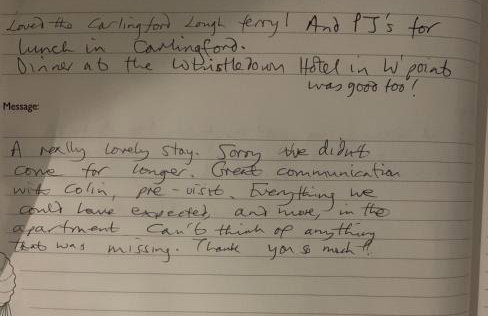 Loved the Carlingford Lough ferry! And PJ's for
lunch in Carlingford.
Dinner at the Whistledown Hotel in W'point
was good too!
Message:
A really lovely stay. Sorry we didn't
come for longer. Great communication
with Colin, pre-visit. Everything we
could have expected, and more, in the
apartment. Can't think of anything
that was missing. Thank you so much!!